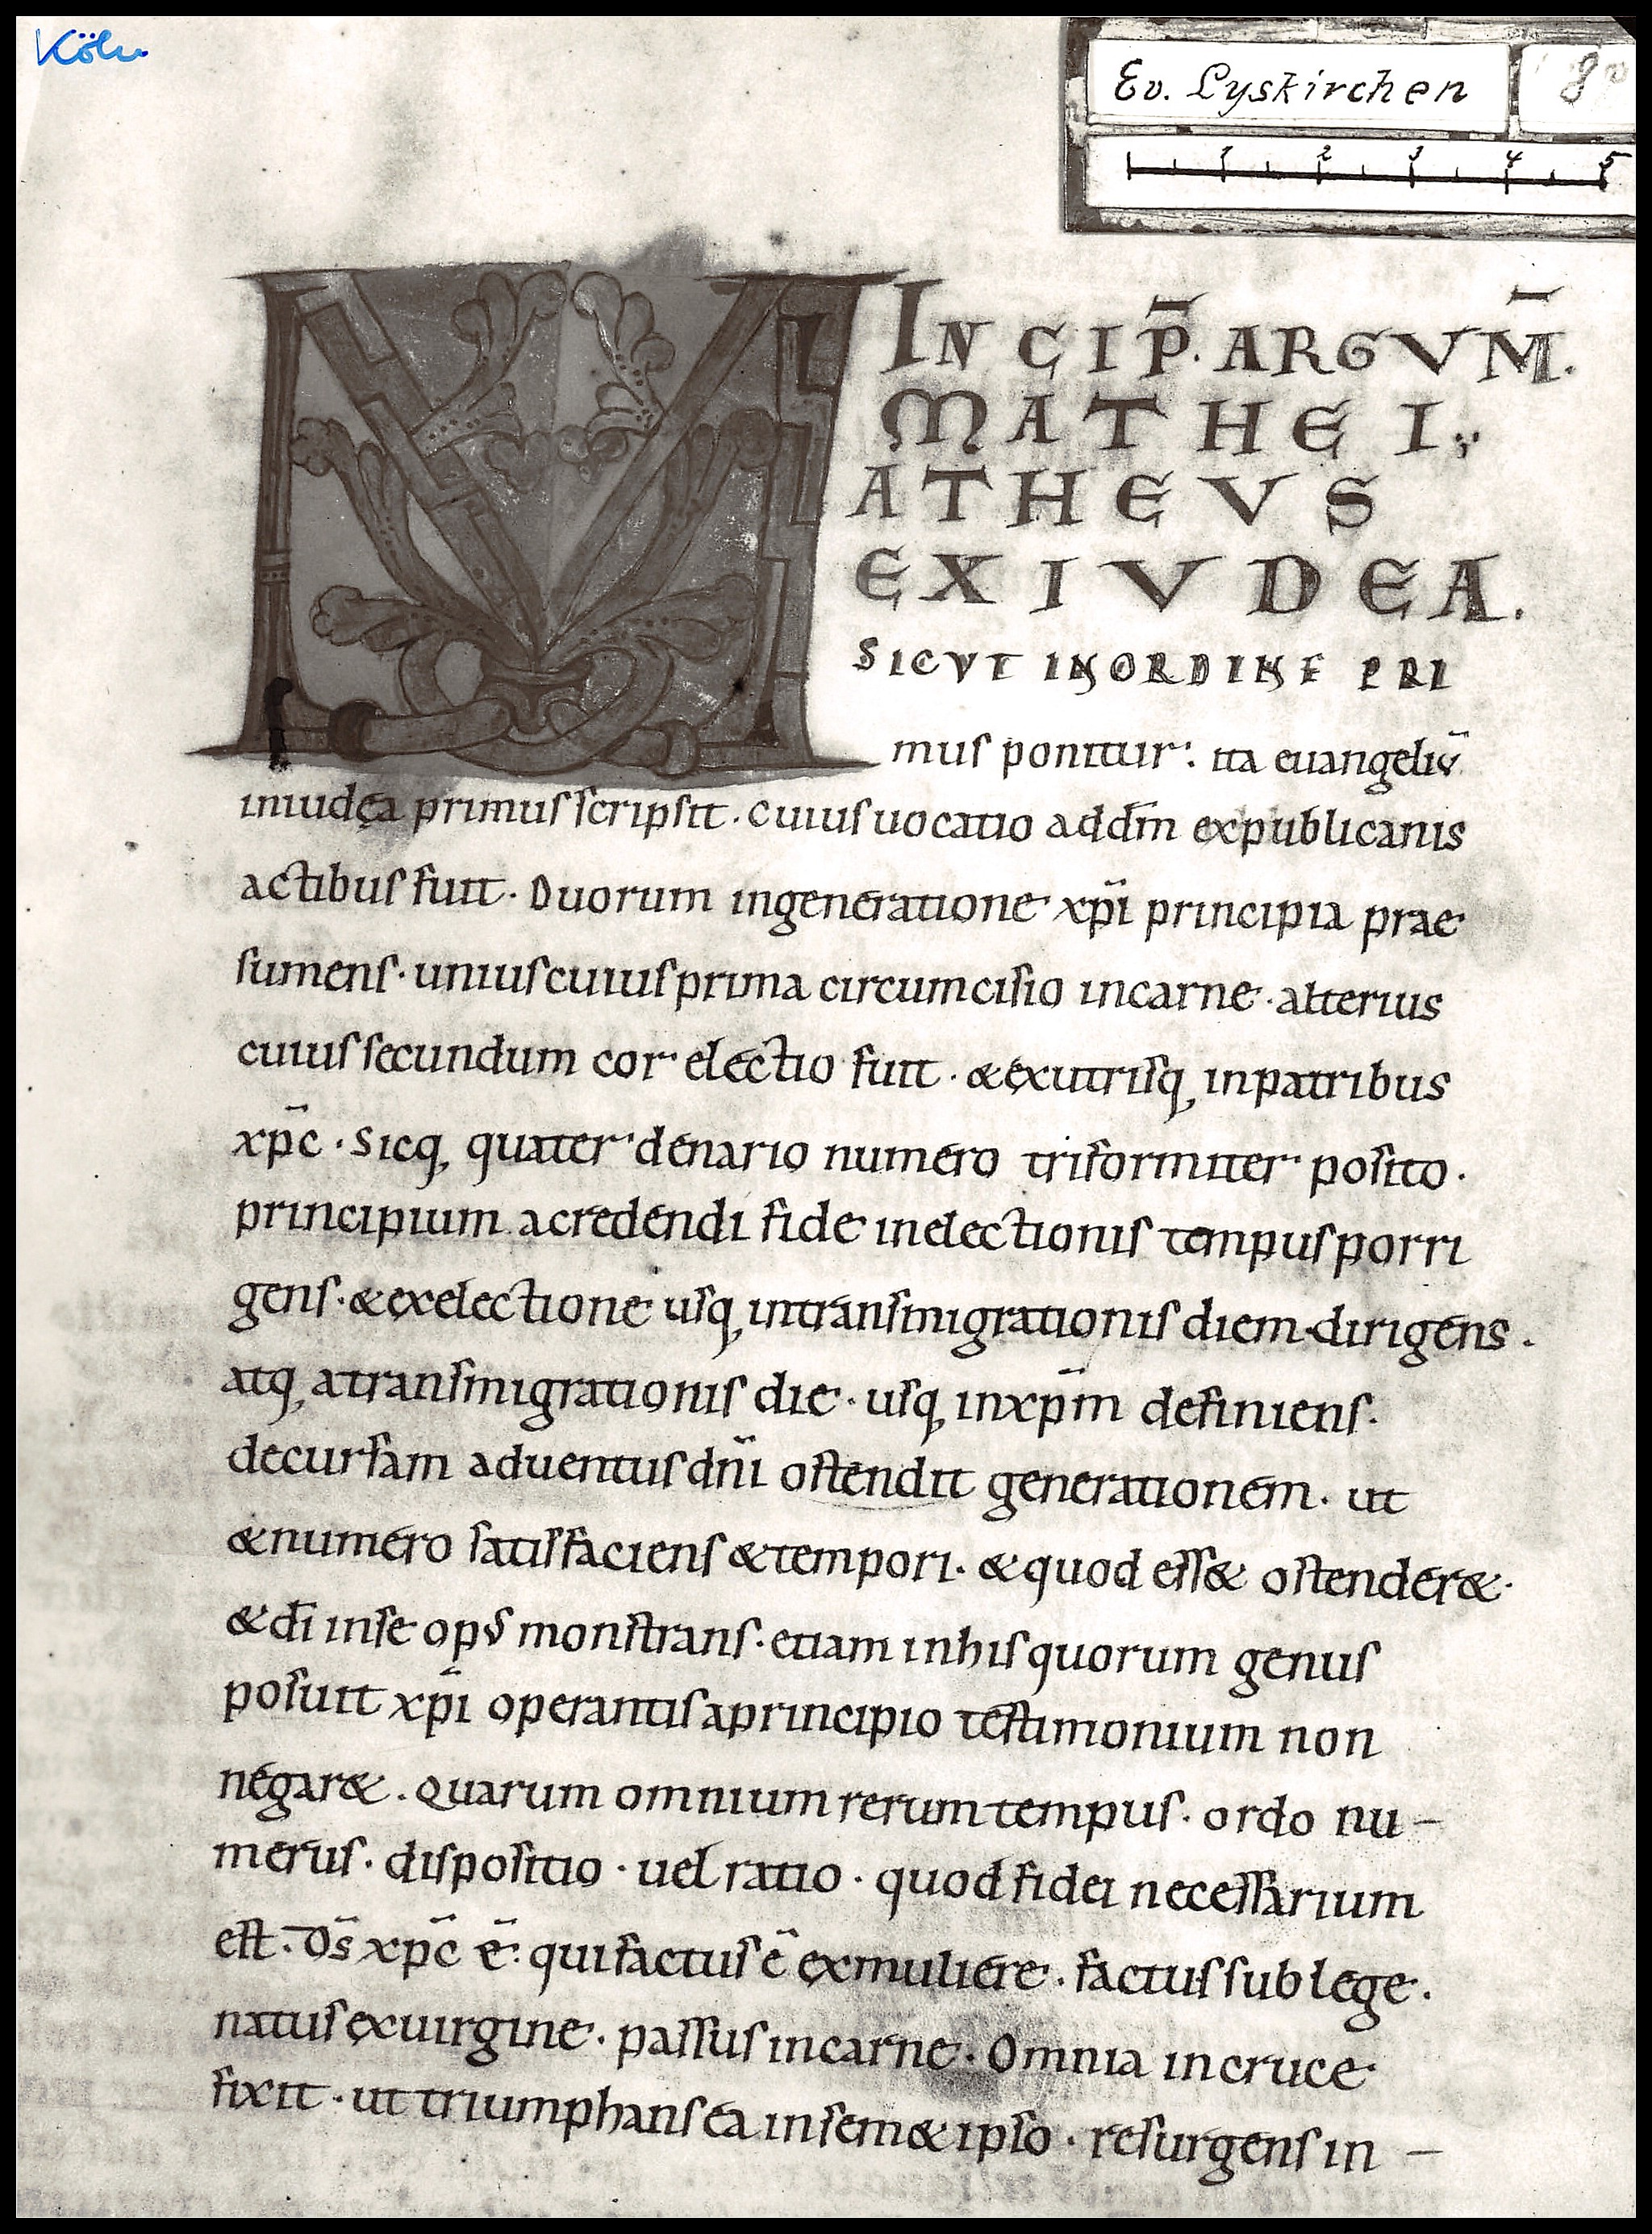 Köln
Ev. Lyskirchen 8v
1 2 3 4 5
INCIP̄. ARGVM̄.
MATHEI.
MATHEVS
EX IVDEA.
SICVT INORDINE PRI
mus ponitur: ita euangeliū
iniudęa primus scripsit. cuius uocatio addm̄ expublicanis
actibus fuit. Duorum ingeneratione xp̄i principia prae
sumens. unius cuius prima circumcisio incarne. alterius
cuius secundum cor electio fuit. &exutrisq, inpatribus
xp̄c. Sicq, quater denario numero triformiter posito.
principium acredendi fide inelectionis tempus porri
gens. &exelectione usq, intransmigrationis diem dirigens.
atq, atransmigrationis die. usq, inxp̄m definiens.
decursam aduentus dn̄i ostendit generationem. ut
&numero satisfaciens &tempori. & quod ess& ostender&.
&dī inse opus monstrans. etiam inhis quorum genus
posuit xp̄i operantis aprincipio testimonium non
negar&. Quarum omnium rerum tempus. ordo nu-
merus. dispositio. uel ratio. quod fidei necessarium
est. Ds̄ xp̄c ē. qui factus ē exmuliere. factus sub lege.
natus exuirgine. passus incarne. Omnia incruce
fixit. ut triumphans ea insem& ipso. resurgens in-